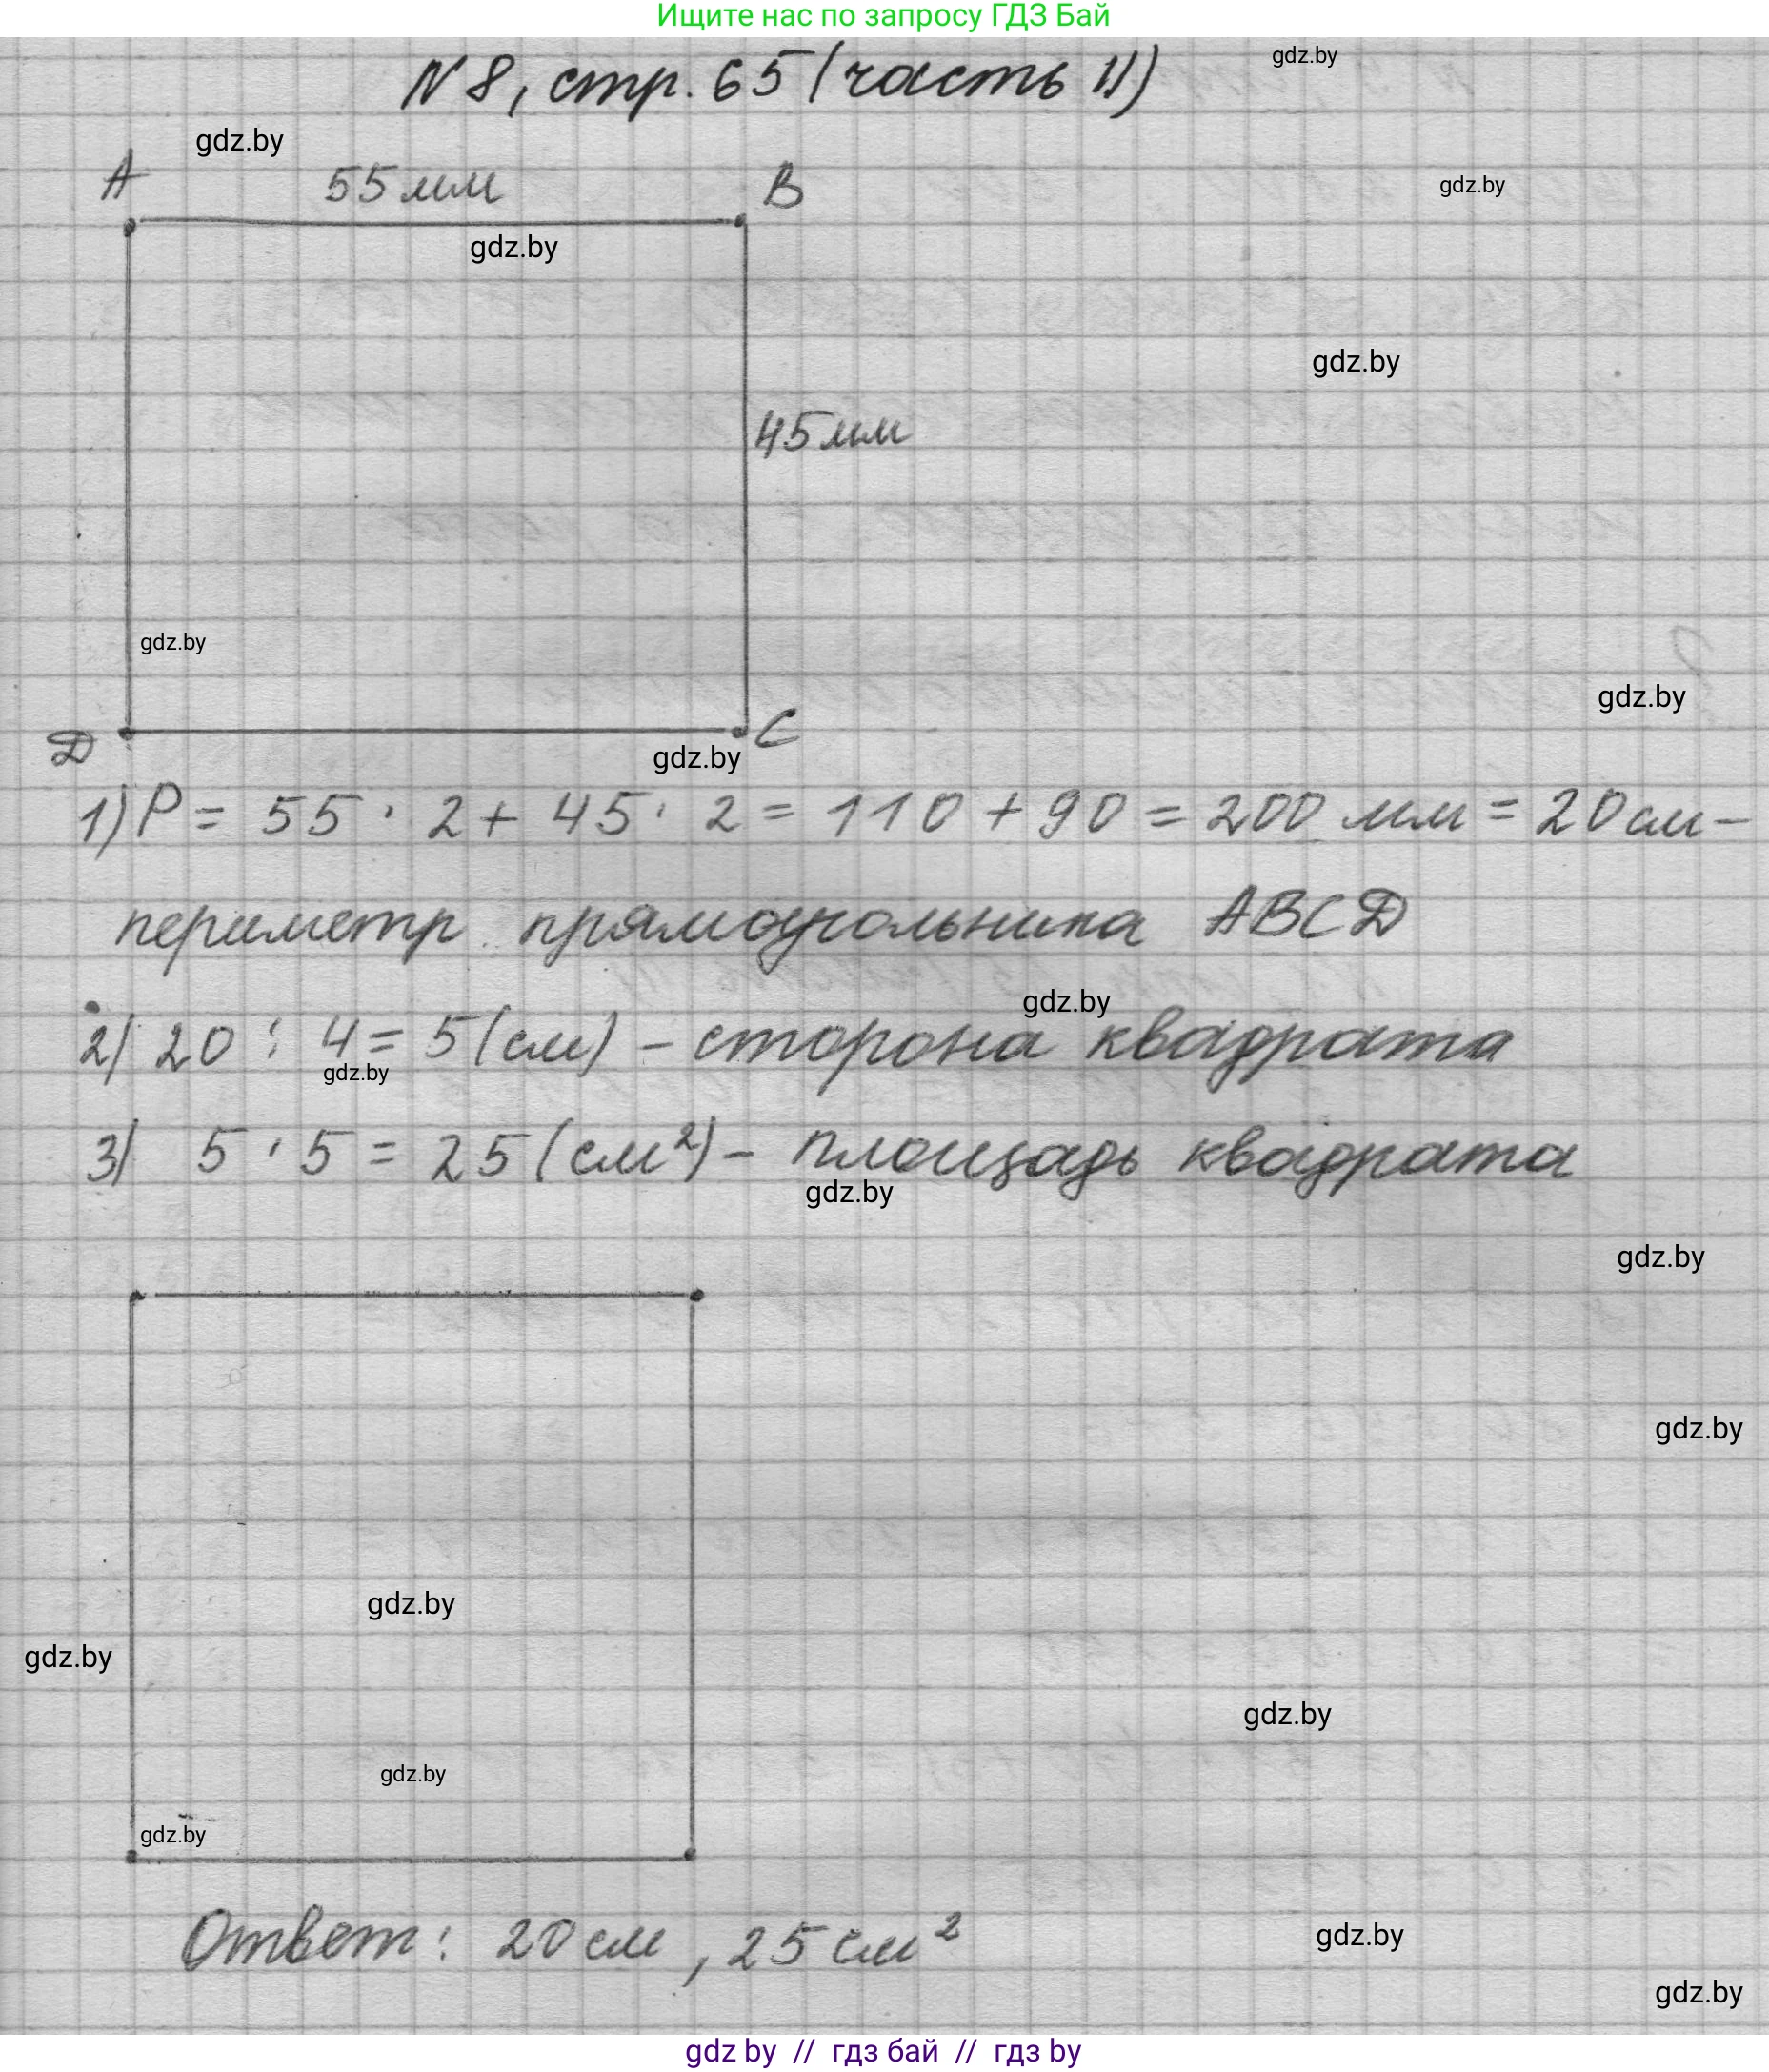 Ищите нас по запросу ГДЗ Бай
N8, стр. 65 (часть II)
gdz.by
gdz.by
A 55мм B
gdz.by
gdz.by
gdz.by
45мм
gdz.by
gdz.by
D C
gdz.by
1) P = 55 · 2 + 45 · 2 = 110 + 90 = 200 мм = 20 см –
периметр прямоугольника ABCD
gdz.by
2) 20 : 4 = 5 (см) – сторона квадрата
gdz.by
3) 5 · 5 = 25 (см²) – площадь квадрата
gdz.by
gdz.by
gdz.by
gdz.by
gdz.by
gdz.by
gdz.by
gdz.by
Ответ: 20 см, 25 см²
gdz.by
gdz.by
gdz by // гдз бай // гдз by